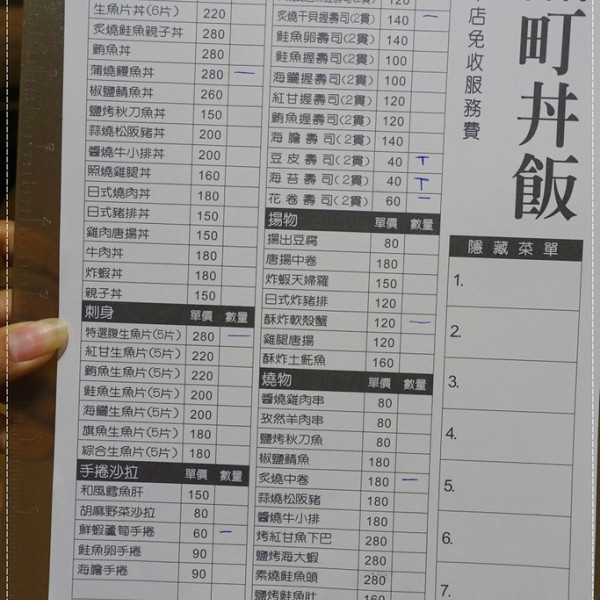 生魚片丼(6片) 220
炙燒鮭魚親子丼 280
鮪魚丼 280
蒲燒鰻魚丼 280 一
椒鹽鯖魚丼 260
鹽烤秋刀魚丼 150
蒜燒松阪豬丼 200
醬燒牛小排丼 200
照燒雞腿丼 160
日式燒肉丼 180
日式豬排丼 150
雞肉唐揚丼 150
牛肉丼 180
炸蝦丼 180
親子丼 150
刺身 單價 數量
特選腹生魚片(5片) 280 一
紅甘生魚片(5片) 220
鮪魚生魚片(5片) 220
鮭魚生魚片(5片) 200
海鱺生魚片(5片) 200
旗魚生魚片(5片) 180
綜合生魚片(5片) 180
手捲沙拉 單價 數量
和風鱈魚肝 150
胡麻野菜沙拉 80
鮮蝦蘆筍手捲 60 一
鮭魚卵手捲 90
海膽手捲 90
炙燒干貝握壽司(2貫) 140 一
鮭魚卵壽司(2貫) 140
鮭魚握壽司(2貫) 100
海鱺握壽司(2貫) 100
紅甘握壽司(2貫) 120
鮪魚握壽司(2貫) 120
海膽壽司(2貫) 140
豆皮壽司(2貫) 40 T
海苔壽司(2貫) 40 T
花卷壽司(2貫) 60 一
揚物 單價 數量
揚出豆腐 80
唐揚中卷 180
炸蝦天婦羅 150
日式炸豬排 120
酥炸軟殼蟹 120 一
雞腿唐揚 120
酥炸土魠魚 160
燒物 單價 數量
醬燒雞肉串 80
孜然羊肉串 80
鹽烤秋刀魚 80
椒鹽鯖魚 180
炙燒中卷 180 一
蒜燒松阪豬 180
醬燒牛小排 180
烤紅甘魚下巴 280
鹽烤海大蝦 280
素燒鮭魚頭 280
鹽烤鮭魚肚 160
町丼飯
店免收服務費
隱藏菜單
1.
2.
3.
4.
5.
6.
7.